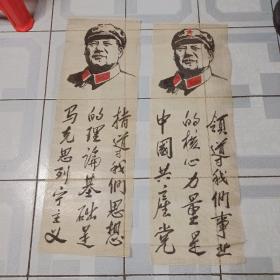 领導我们事业
的核心力量是
中國共產党
指導我们思想
的理論基础是
马克思列宁主义